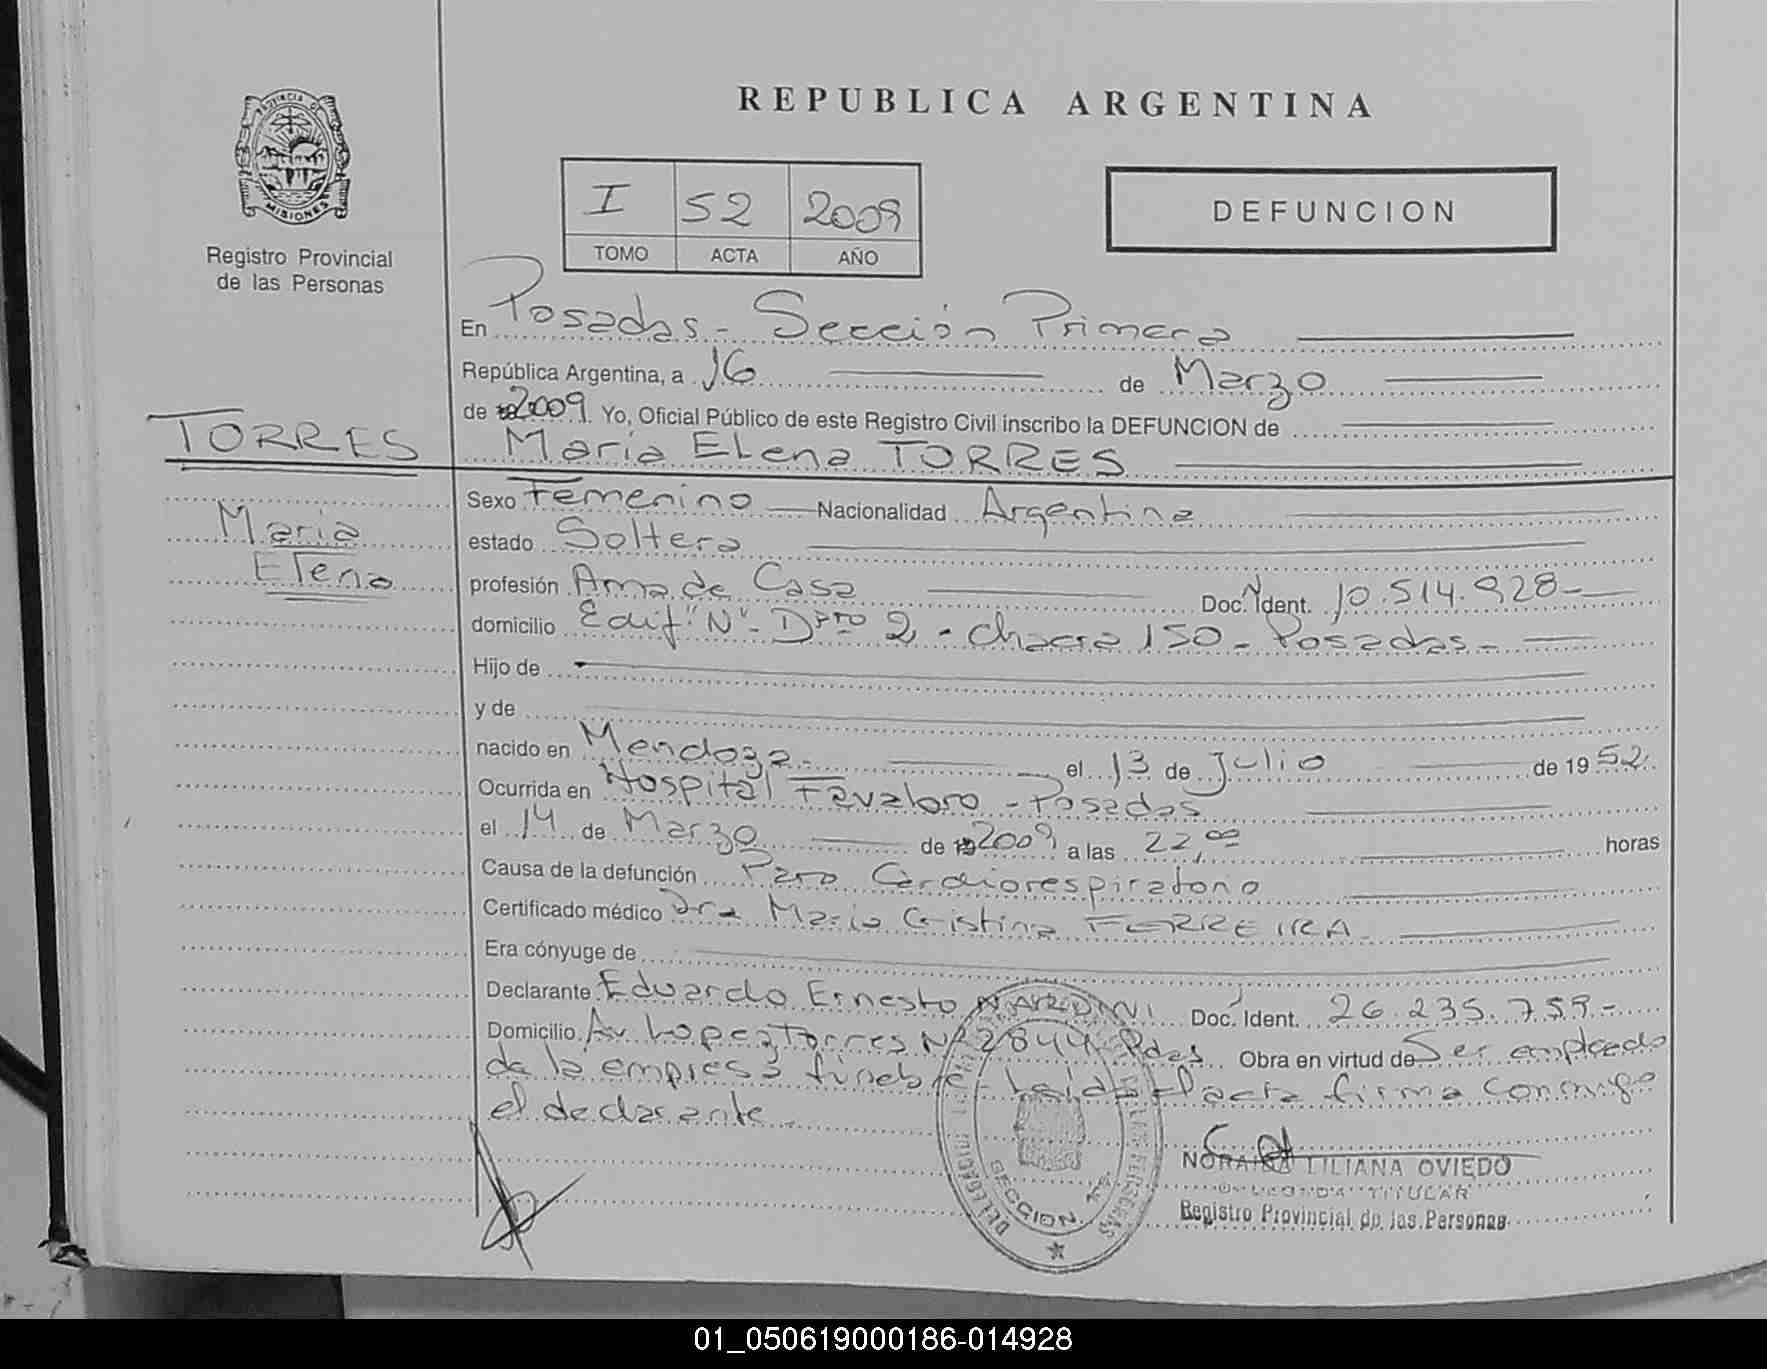 REPUBLICA ARGENTINA
PROVINCIA DE MISIONES
Registro Provincial
de las Personas
I 52 2009
TOMO ACTA AÑO
DEFUNCION
En Posadas - Sección Primera
República Argentina, a 16 de Marzo
de 2009 Yo, Oficial Público de este Registro Civil inscribo la DEFUNCION de
TORRES
Maria Elena TORRES
Maria
Elena
Sexo Femenino Nacionalidad Argentina
estado Soltera
profesión Ama de Casa Doc. Ident. 10.514.928-
domicilio Edif "N" - Dpto 2 - Chacra 150 - Posadas -
Hijo de
y de
nacido en Mendoza - el 13 de Julio de 1952
Ocurrida en Hospital Favaloro - Posadas
el 14 de Marzo de 2009 a las 22,00 horas
Causa de la defunción Paro Cardiorespiratorio
Certificado médico Dra Maria Cristina FERREIRA
Era cónyuge de
Declarante Eduardo Ernesto NARDINI Doc. Ident. 26.235.759-
Domicilio Av. Lopez Torres Nº 2844 Pdas Obra en virtud de Ser empleado
de la empresa funebre - Leida el acta firma conmigo
el declarante -
NORA LILIANA OVIEDO
TITULAR
Registro Provincial de las Personas
SECCION
01_050619000186-014928